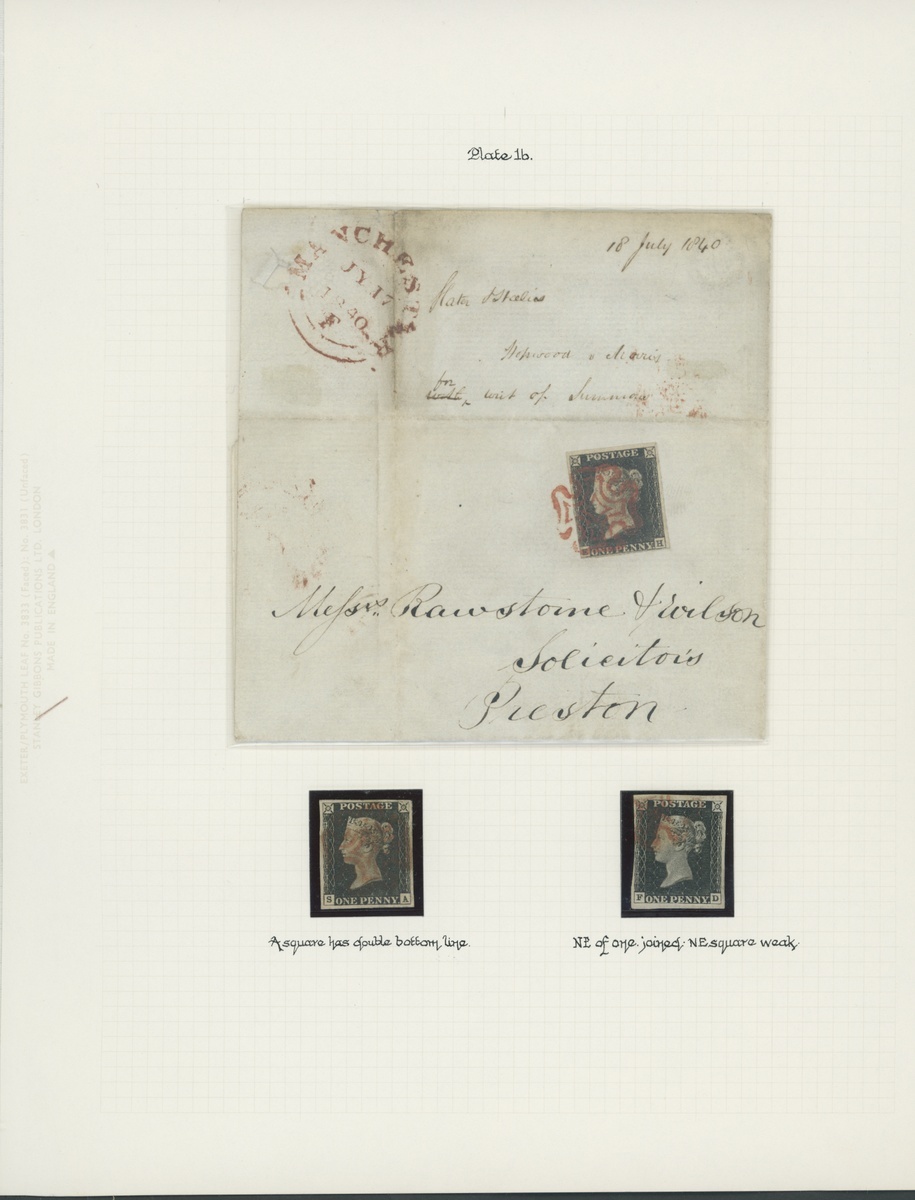 Plate 1b.
MANCHESTER
JY 17
1840
F
18 July 1840
Slater & Heelis
Hopwood v Morris
for
writ of Summons
POSTAGE
ONE PENNY H
Messrs. Rawstorne & Wilson
Solicitors
Preston
POSTAGE
S ONE PENNY A
POSTAGE
F ONE PENNY D
A square has double bottom line.
NE of one. joined: N.E square weak.
EXETER/PLYMOUTH LEAF No. 3833 (Faced) No. 3831 (Unfaced)
STANLEY GIBBONS PUBLICATIONS LTD. LONDON
MADE IN ENGLAND